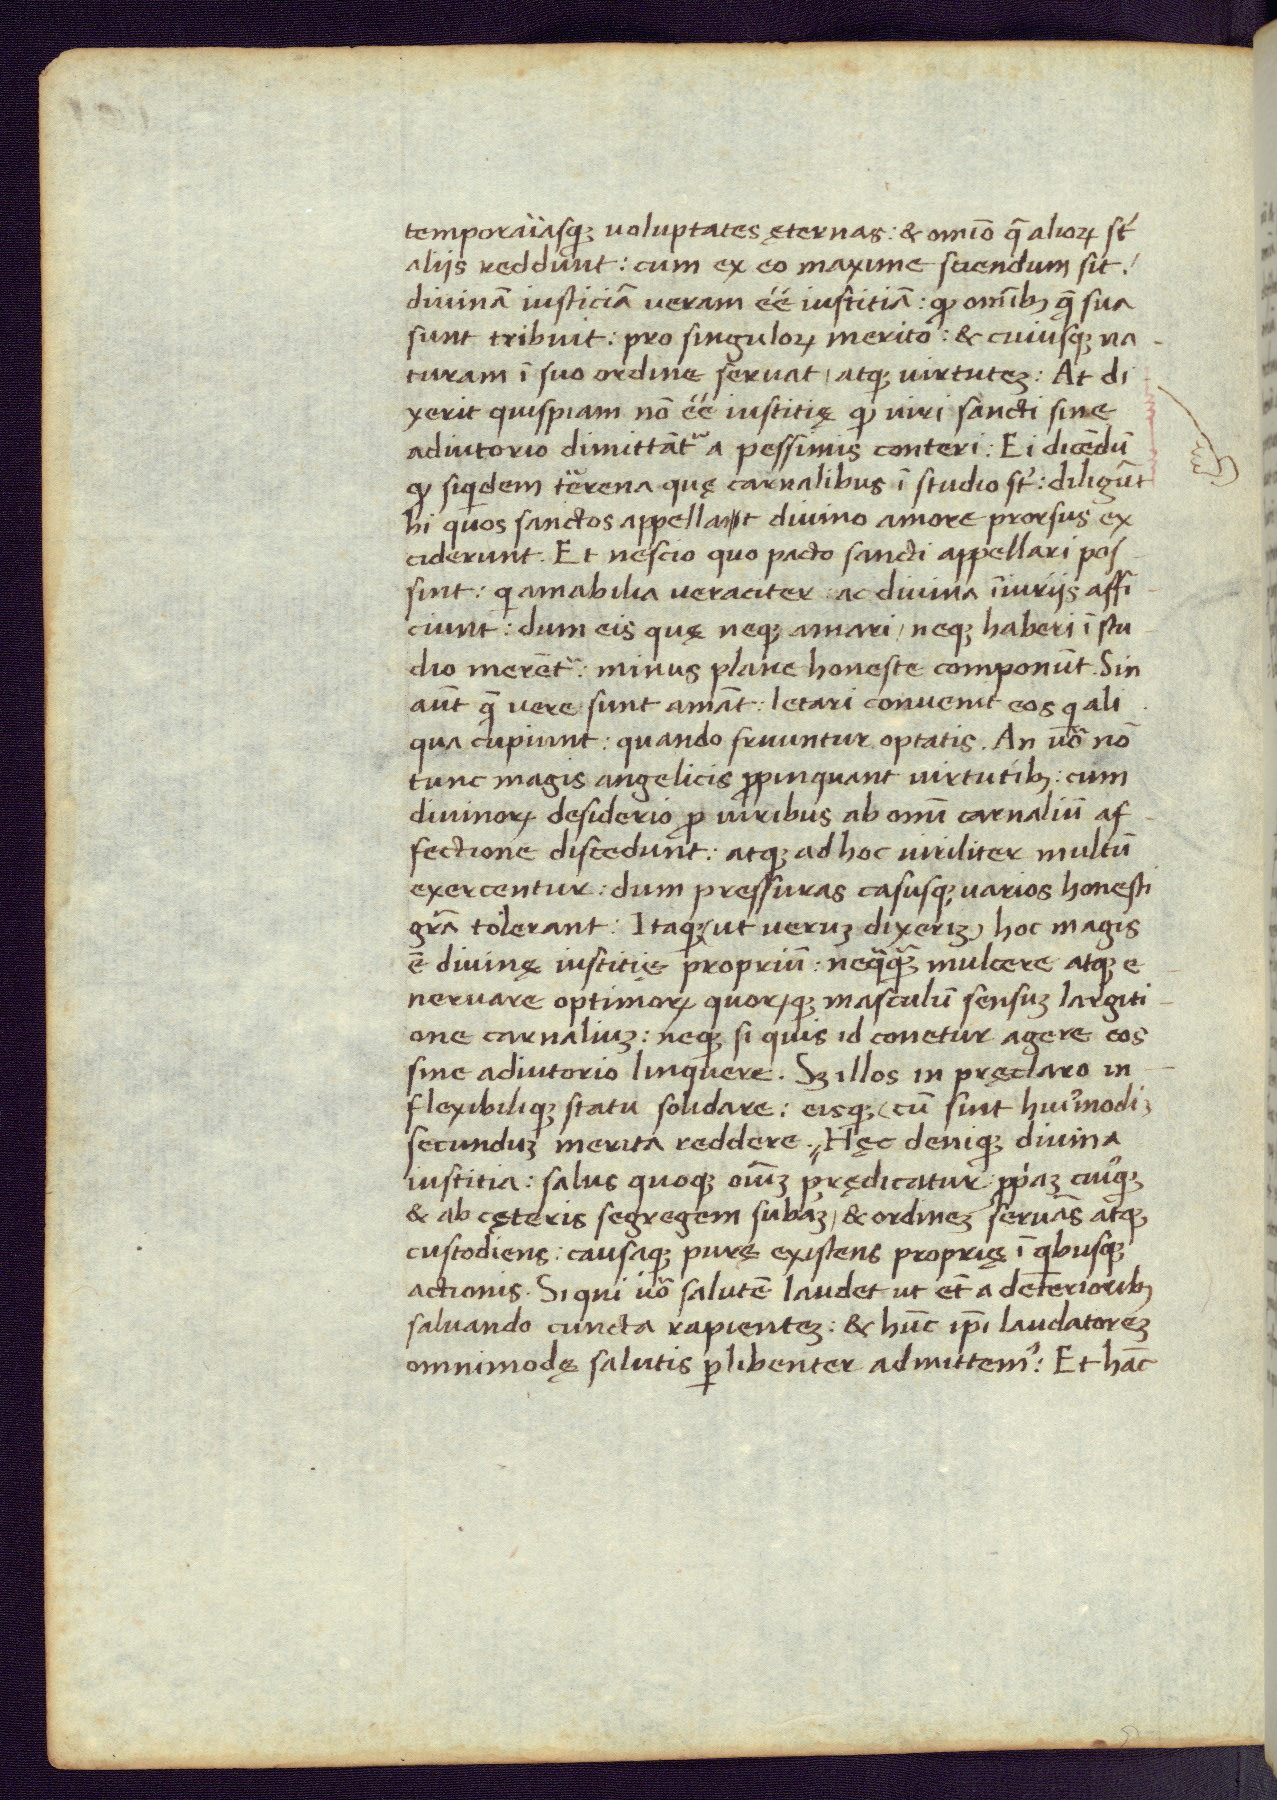 temporariasqꝫ voluptates ęternas: & omīo q̄ alioꝝ st́
aliis reddunt: cum ex eo maxime sciendum sit!
divinā iusticiā veram éé iustitiā: ꝙ omībꝫ q̄ sua
sunt tribuit: pro singuloꝝ merito: & cuiusqꝫ na-
turam ī suo ordine servat / atqꝫ virtuteꝫ: At di
xerit quispiam nō éé iustitię ꝙ viri sancti sine
adiutorio dimittāt᷑ a pessimis conteri: Ei dicēdū
ꝙ siqidem terrena quę carnalibus ī studio st́: diligūt
hi quos sanctos appellant divino amore prorsus ex
ciderunt. Et nescio quo pacto sancti appellari pos-
sint: qi amabilia veraciter: ac divina īiuriis affi-
ciunt: dum eis quę neqꝫ amari / neqꝫ haberi ī stu-
dio merēt᷑: minus plane honeste componūt. Sin
aūt q̄ vere sunt amāt: letari convenit eos q ali-
qua cupiunt: quando fruuntur optatis. An ūo nō
tunc magis angelicis ꝓpinquant virtutibꝫ: cum
divinoꝝ desiderio ꝓ viribus ab omī carnaliū af-
fectione discedunt: atqꝫ ad hoc viriliter multū
exercentur: dum pressuras casusqꝫ varios honesti
grā tolerant: Itaqꝫ (ut veruꝫ dixeriꝫ) hoc magis
ē divinę iustitię propriū: neqꝗꝫ mulcere atqꝫ e-
nervare optimoꝝ quoꝝqꝫ masculū sensuꝫ largiti-
one carnaliuꝫ: neqꝫ si quis id conetur agere eos
sine adiutorio linquere. Sꝫ illos in pręclaro in-
flexibiliqꝫ statu solidare: eisqꝫ (cū sint huiꝰmodi)
secunduꝫ merita reddere. Hęc deniqꝫ divina
iustitia: salus quoqꝫ oīuꝫ prędicatur: ꝓpaꝫ cuiꝰqꝫ
& ab cęteris segregem subāꝫ / & ordineꝫ servās atqꝫ
custodiens: causaqꝫ purę existens proprię ī qbusqꝫ
actionis. Si qui ūo salutē laudet ut et̄ a deterioribꝫ
salvando cuncta rapienteꝫ: & hūc ip̄i laudatoreꝫ
omnimodę salutis ꝑlibenter admittemꝰ: Et hāc